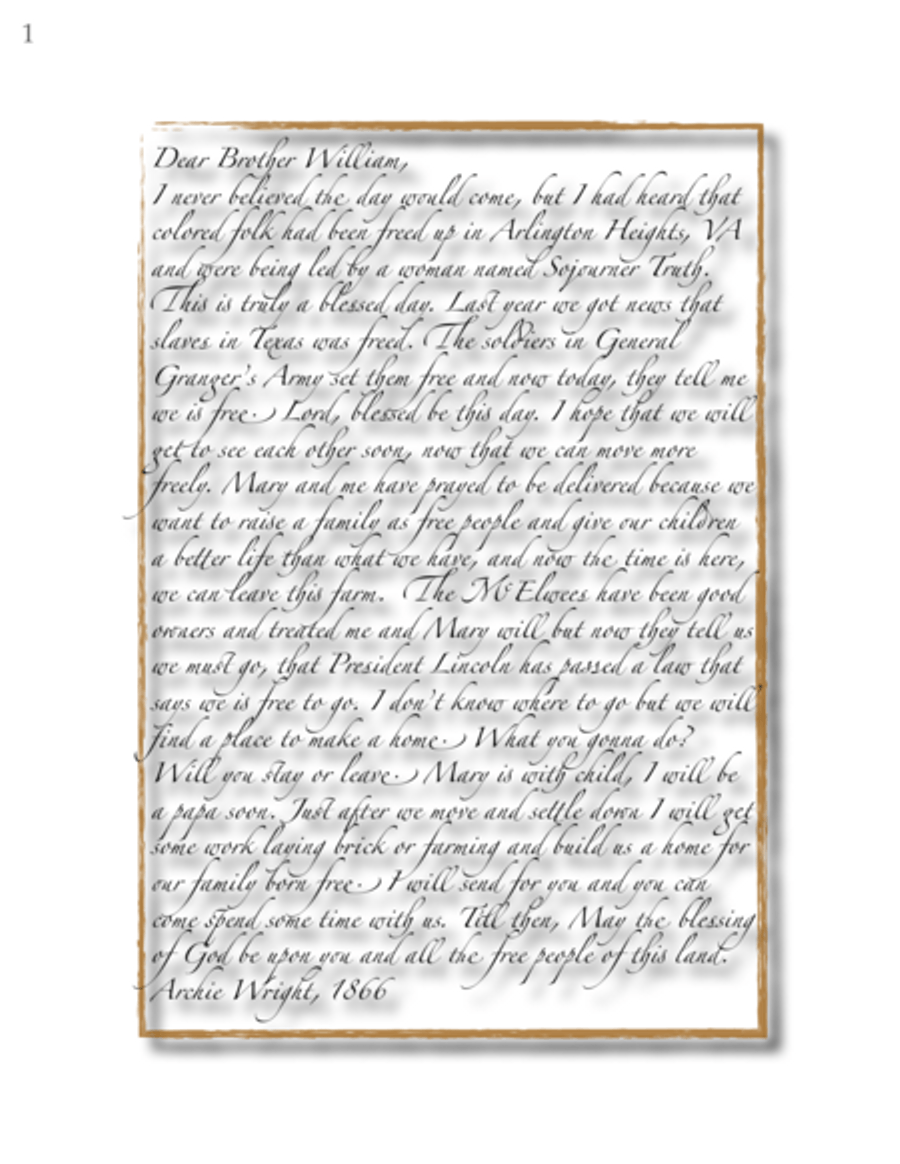 1
Dear Brother William,
I never believed the day would come, but I had heard that
colored folk had been freed up in Arlington Heights, VA
and were being led by a woman named Sojourner Truth.
This is truly a blessed day. Last year we got news that
slaves in Texas was freed. The soldiers in General
Granger's Army set them free and now today, they tell me
we is free. Lord, blessed be this day. I hope that we will
get to see each other soon, now that we can move more
freely. Mary and me have prayed to be delivered because we
want to raise a family as free people and give our children
a better life than what we have, and now the time is here,
we can leave this farm. The McElwees have been good
owners and treated me and Mary will but now they tell us
we must go, that President Lincoln has passed a law that
says we is free to go. I don't know where to go but we will
find a place to make a home. What you gonna do?
Will you stay or leave. Mary is with child, I will be
a papa soon. Just after we move and settle down I will get
some work laying brick or farming and build us a home for
our family born free. I will send for you and you can
come spend some time with us. Till then, May the blessing
of God be upon you and all the free people of this land.
Archie Wright, 1866